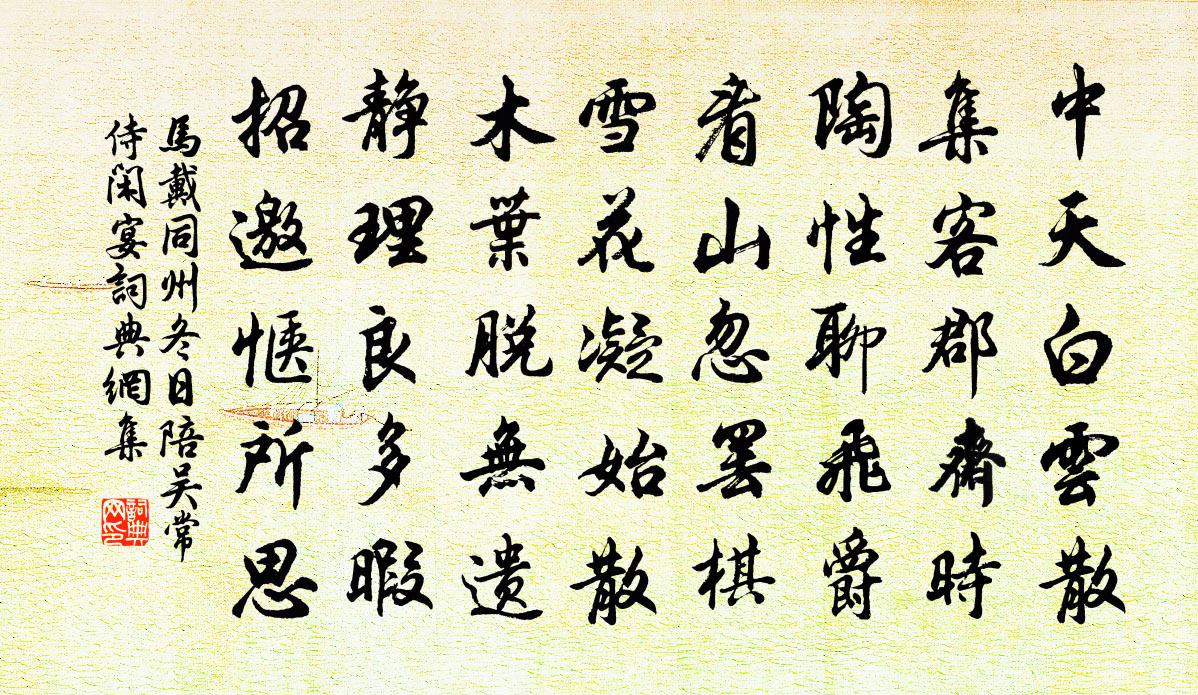 中天白雲散
集客郡齋時
陶性聊飛爵
看山忽罷棋
雪花凝始散
木葉脱無遺
靜理良多暇
招邀愜所思
馬戴同州冬日陪吴常
侍閑宴詞典網集
詞典
网印